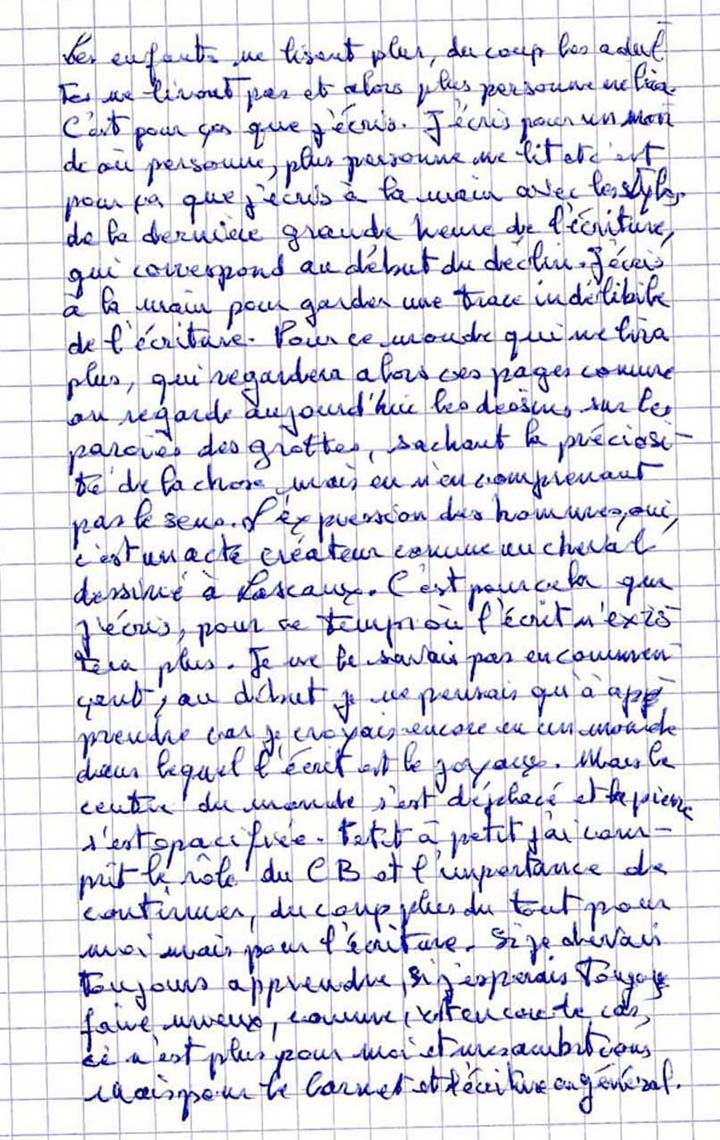 Les enfants ne lisent plus, du coup les adul
tes ne liront pas et alors plus personne ne lira.
C'est pour ça que j'écris. J'écris pour un mon
de où personne, plus personne ne lit et c'est
pour ça que j'écris à la main avec les stylos
de la dernière grande heure de l'écriture,
qui correspond au début du déclin. J'écris
à la main pour garder une trace indélibile
de l'écriture. Pour ce monde qui ne lira
plus, qui regardera alors ces pages comme
on regarde aujourd'hui les dessins sur les
parois des grottes, sachant la préciosi-
té de la chose mais en n'en comprenant
pas le sens. L'expression des hommes, oui,
c'est un acte créateur comme un cheval
dessiné à Lascaux. C'est pour cela que
j'écris, pour ce temps où l'écrit n'exis
tera plus. Je ne le savais pas en commen
çant, au début je ne pensais qu'à app
prendre car je croyais encore en un monde
dans lequel l'écrit est le joyaux. Mais le
centre du monde s'est déplacé et la pierre
s'est opacifiée. Petit à petit j'ai com-
prit le rôle du CB et l'importance de
continuer, du coup plus du tout pour
moi mais pour l'écriture. Si je devais
toujours apprendre, si j'espérais toujours
faire mieux, comme c'est encore le cas,
ce n'est plus pour moi et mes ambitions
mais pour le carnet et l'écriture en général.